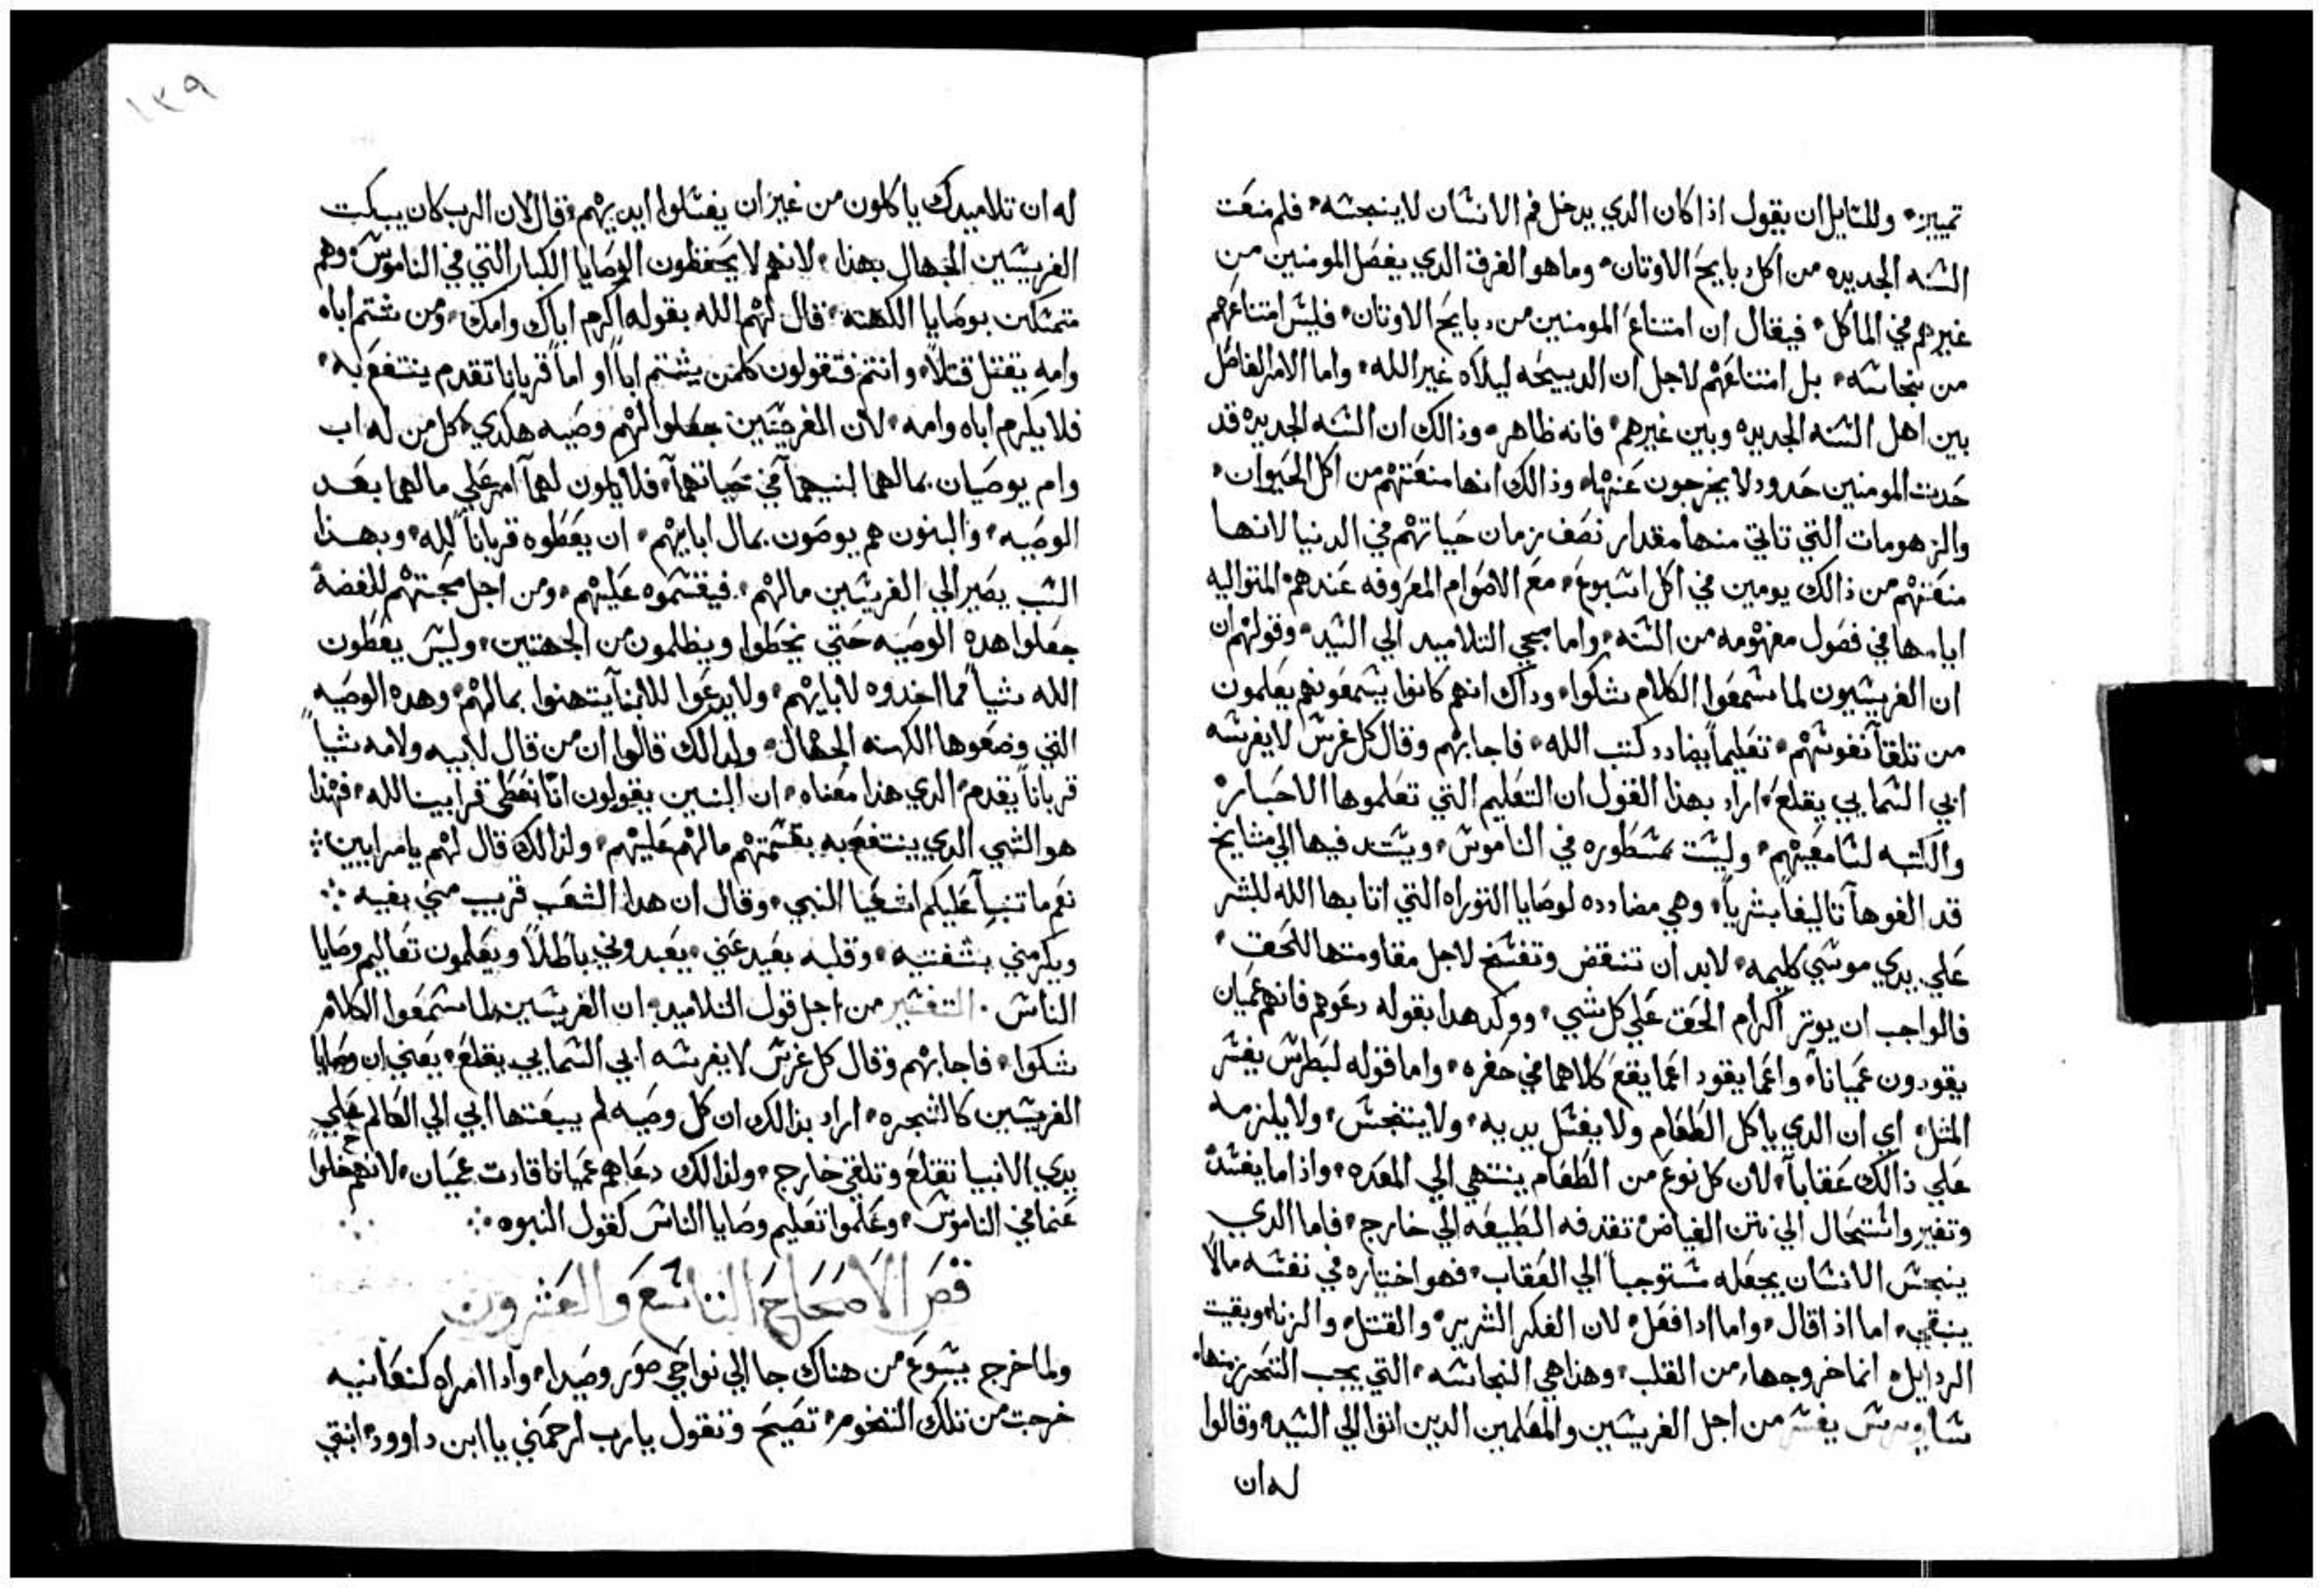 تمييز، وللقايل ان يقول اذا كان الدي يدخل فم الانسان لا ينجسه، فلم منعت
السنه الجديده من اكل دبايح الاوتان، وما هو الفرق الدي يفصل المومنين من
غيرهم في الماكل، فيقال ان امتناع المومنين من دبايح الاوتان، فليس امتناعهم
من نجاسه، بل امتناعهم لاجل ان الدبيحه ليلاه غير الله، واما الامر الفاصل
بين اهل السنه الجديده وبين غيرهم، فانه ظاهر، وذالك ان السنه الجديده قد
حدت المومنين حدود لا يخرجون عنها، وذالك انها منعتهم من اكل الحيوان،
والزهومات التي تاتي منها مقدار نصف زمان حياتهم في الدنيا لانها
منعتهم من ذالك يومين في اكل اسبوع، مع الاصوام المعروفه عندهم المتواليه
ايامها في فصول مفهومه من السنه، واما مجي التلاميد الي السيد، وقولهم ان
ان الفريسيون لما سمعوا الكلام شكوا، وداك انهم كانوا يسمعونهم يعلمون
من تلقآ نفوسهم، تعليماً يضادد كتب الله، فاجابهم وقال كل غرس لا يغرسه
ابي السمايي يقلع، اراد بهذا القول ان التعليم التي تعلموها الاحبار،
والكتبه لسامعيهم، وليست مسطوره في الناموس، ويسند فيها الي مشايخ
قد الفوهآ تاليفاً بشرياً، وهي مضادده لوصايا التوراه التي اتا بها الله للبشر
علي يدي موسي كليمه، لابد ان تنقض وتفسخ لاجل مقاومتها للحق،
فالواجب ان يوتر اكرام الحق علي كل شي، ووكد هدا بقوله دعوهم فانهم عميان
يقودون عمياناً، واعما يقود اعما يقع كلاهما في حفره، واما قوله لبطرس يفسر
المثل، اي ان الدي ياكل الطعام ولا يغسل يديه، ولا يتنجس، ولا يلزمه
علي ذالك عقاباً، لان كل نوع من الطعام ينتهي الي المعده، واذا ما يفسد
وتغير واستحال الي نتن الغياض تقدفه الطبيعه الي خارج، فاما الدي
ينجس الانسان يجعله مستوجباً الي العقاب، فهو اختياره في نفسه مالا
ينبغي، اما اذا قال، واما ادا فعل، لان الفكر الشرير، والقتل، والزنا، وبقيت
الردايل، انما خروجها من القلب، وهذا هي النجاسه، التي يجب التحرز منها،
يفسر من اجل الفريسين والمعلمين الدين اتوا الي السيد، وقالوا
له ان
١٣٩
له ان تلاميدك ياكلون من غير ان يغسلوا ايديهم، قال لان الرب كان يبكت
الفريسين الجهال بهذا، لانهم لا يحفظون الوصايا الكبار التي في الناموس، وهم
متمسكين بوصايا الكهنه، قال لهم الله بقوله اكرم اباك وامك، ومن شتم اباه
وامه يقتل قتلاً، وانتم فتقولون كلمن يشتم اباً او اماً قرباناً تقدم ينتفع به،
فلا يكرم اباه وامه، لان المفرجيين جعلوا لهم وصيه هكدي، كل من له اب
وام يوصيان بمالهما لبنيهمآ في حياتهمآ، فلا يكون لهمآ امر علي مالهما بعد
الوصيه، والبنون هم يوصون بمال ابايهم، ان يعطوه قرباناً لله، وبهذا
السبب يصير الي الفريسين مالهم، فيقسموه عليهم، ومن اجل محبتهم للفضة
جعلوا هده الوصيه حتي يخطوا ويظلمون من الجهتين، وليس يعطون
الله شياً مما اخدوه لابايهم، ولا يدعوا للابنآ يتهنوا بمالهم، وهده الوصيه
التي وضعوها الكهنه الجهال، ولدالك قالوا ان من قال لابيه ولامه شياً
قرباناً يقدم، الدي هذا معناه، ان البنين يقولون انا نعطي قرابيننا لله، فهذا
هو الشي الدي ينتفع به بقسمتهم مالهم عليهم، ولذالك قال لهم يا مرايين:
نعم ما تنبآ عليكم اشعيا النبي، وقال ان هدا الشعب قريب مني بفيه ∴
ويكرمني بشفتيه، وقلبه بعيد عني، يعبدوني باطلاً ويعلمون تعاليم وصايا
الناس . التفسير من اجل قول التلاميد، ان الفريسين لما سمعوا الكلام
شكوا، فاجابهم وقال كل غرس لا يغرسه ابي السمايي يقلع، يعني ان وصايا
الفريسين كالشجره، اراد بدالك ان كل وصيه لم يبعتها ابي الي العالم علي
يدي الانبيا تقتلع وتلقي خارج، ولذالك دعاهم عميانا قادت عميان، لانهم غفلوا
عنما في الناموس، وعلموا تعليم وصايا الناس كقول النبوه ∴
قص الاصحاح التاسع والعشرون
ولما خرج يسوع من هناك جا الي نواحي صور وصيدا، وادا امراه كنعانيه
خرجت من تلك التخوم، تصيح وتقول يا رب ارحمني يا ابن داوود، ابنتي